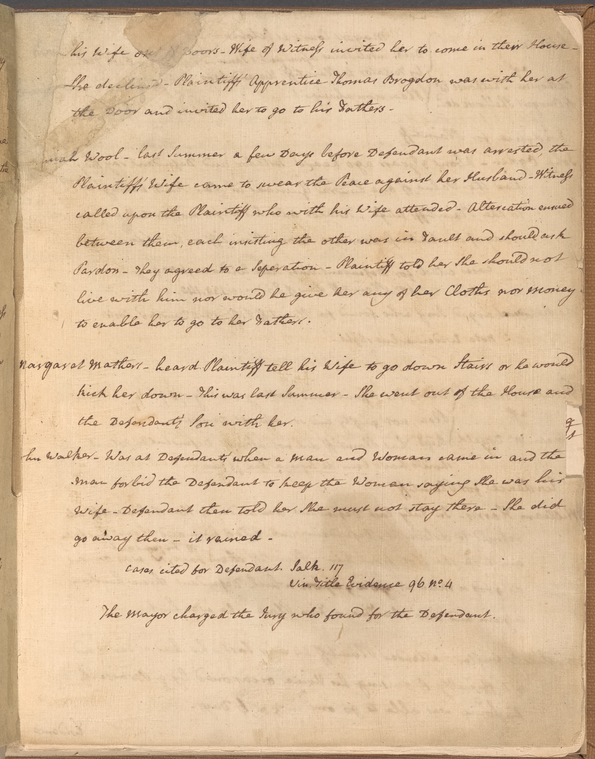 his Wife out of Doors - Wife of Witness invited her to come in their House -
She declined - Plaintiffs Apprentice Thomas Brogdon was with her at
the Door and invited her to go to his Fathers -
mah Wool - last Summer a few Days before Defendant was arrested, the
Plaintiffs Wife came to swear the Peace against her Husband - Witness
called upon the Plaintiff who with his Wife attended - Altercation ensued
between them, each insisting the other was in Fault and should ask
Pardon - They agreed to a Seperation - Plaintiff told her She should not
live with him nor would he give her any of her Cloths nor Money
to enable her to go to her Fathers.
Margaret Mathers - heard Plaintiff tell his Wife to go down Stairs or he would
kick her down - This was last Summer - She went out of the House and
the Defendants Son with her.
hn Walker - Was at Defendants when a Man and Woman came in and the
Man forbid the Defendant to keep the Woman saying She was his
Wife - Defendant then told her She must not stay there - She did
go away then - it rained -
Cases cited for Defendant. Salk. 117
Vin. Title Evidence 96 No. 4
The Mayor charged the Jury who found for the Defendant.